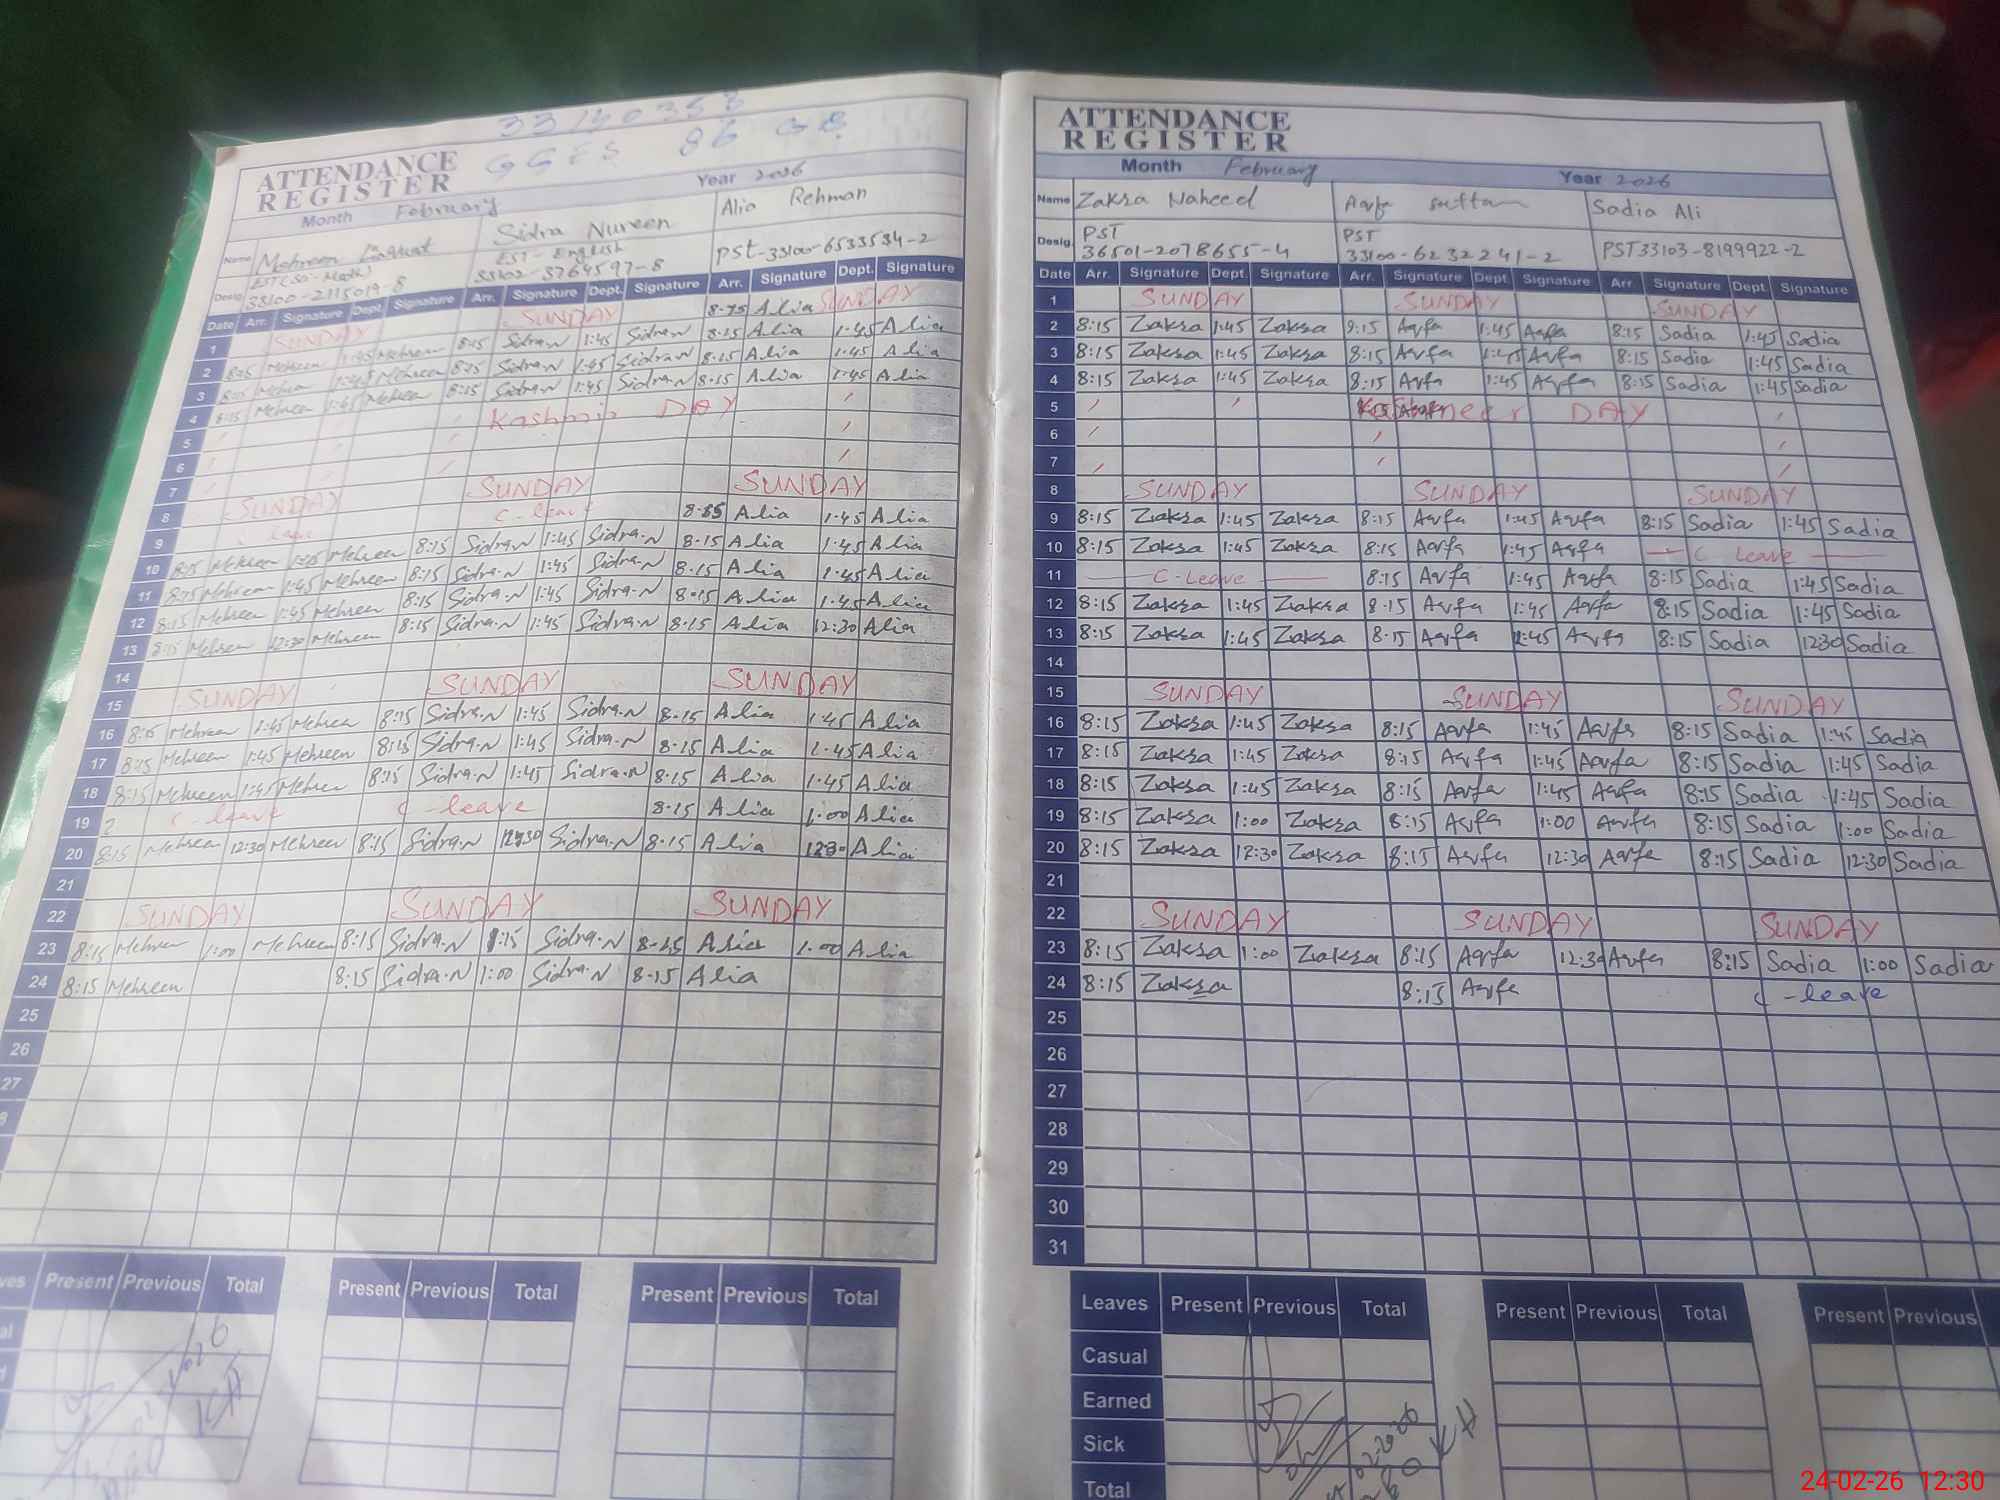 33140358
GGES 86 GB
ATTENDANCE
REGISTER
Month February Year 2026
Name Mehreen Sidra Nureen Alia Rehman
Desig. EST - English PST-33100-6533534-2
33100-2115019-8 33102-3764597-8
Date Arr. Signature Dept. Signature Arr. Signature Dept. Signature Arr. Signature Dept. Signature
1 SUNDAY SUNDAY SUNDAY
8-15 Alia
2 8:15 Mehreen 1:45 Mehreen 8:15 Sidra.N 1:45 Sidra.N 8-15 Alia 1-45 Alia
3 8:15 Mehreen 1:45 Mehreen 8:15 Sidra.N 1:45 Sidra.N 8-15 Alia 1-45 Alia
4 8:15 Mehreen 1:45 Mehreen 8:15 Sidra.N 1:45 Sidra.N 8-15 Alia 1-45 Alia
5 Kashmir DAY
6
7
8 SUNDAY SUNDAY SUNDAY
9 leave C-leave Alia 1-45 Alia
10 8:15 Mehreen 1:45 Mehreen 8:15 Sidra.N 1:45 Sidra.N 8-15 Alia 1-45 Alia
11 8:15 Mehreen 1:45 Mehreen 8:15 Sidra.N 1:45 Sidra.N 8-15 Alia 1-45 Alia
12 8:15 Mehreen 1:45 Mehreen 8:15 Sidra.N 1:45 Sidra.N 8-15 Alia 1-45 Alia
13 8:15 Mehreen 12:30 Mehreen 8:15 Sidra.N 1:45 Sidra.N 8-15 Alia 12:30 Alia
14
15 SUNDAY SUNDAY SUNDAY
16 8:15 Mehreen 1:45 Mehreen 8:15 Sidra.N 1:45 Sidra.N 8-15 Alia 1-45 Alia
17 8:15 Mehreen 1:45 Mehreen 8:15 Sidra.N 1:45 Sidra.N 8-15 Alia 1-45 Alia
18 8:15 Mehreen 1:45 Mehreen 8:15 Sidra.N 1:45 Sidra.N 8-15 Alia 1-45 Alia
19 C-leave C-leave 8-15 Alia 1-00 Alia
20 8:15 Mehreen 12:30 Mehreen 8:15 Sidra.N 12:30 Sidra.N 8-15 Alia 12:30 Alia
21
22 SUNDAY SUNDAY SUNDAY
23 8:15 Mehreen 1:00 Mehreen 8:15 Sidra.N Sidra.N 8-15 Alia 1-00 Alia
24 8:15 Mehreen 8:15 Sidra.N 1:00 Sidra.N 8-15 Alia
25
26
27
Present Previous Total Present Previous Total Present Previous Total
ATTENDANCE
REGISTER
Month February Year 2026
Name Zaksa Naheed Aqfa Sadia Ali
Desig. PST PST PST33103-8199922-2
36501-2078655-4 33100-6232241-2
Date Arr. Signature Dept. Signature Arr. Signature Dept. Signature Arr. Signature Dept. Signature
1 SUNDAY SUNDAY SUNDAY
2 8:15 Zaksa 1:45 Zaksa 8:15 Aqfa 1:45 Aqfa 8:15 Sadia 1:45 Sadia
3 8:15 Zaksa 1:45 Zaksa 8:15 Aqfa 1:45 Aqfa 8:15 Sadia 1:45 Sadia
4 8:15 Zaksa 1:45 Zaksa 8:15 Aqfa 1:45 Aqfa 8:15 Sadia 1:45 Sadia
5 DAY
6
7
8 SUNDAY SUNDAY SUNDAY
9 8:15 Zaksa 1:45 Zaksa 8:15 Aqfa 1:45 Aqfa 8:15 Sadia 1:45 Sadia
10 8:15 Zaksa 1:45 Zaksa 8:15 Aqfa 1:45 Aqfa C leave
11 C-Leave 8:15 Aqfa 1:45 Aqfa 8:15 Sadia 1:45 Sadia
12 8:15 Zaksa 1:45 Zaksa 8-15 Aqfa 1:45 Aqfa 8:15 Sadia 1:45 Sadia
13 8:15 Zaksa 1:45 Zaksa 8-15 Aqfa 1:45 Aqfa 8:15 Sadia 1230 Sadia
14
15 SUNDAY SUNDAY SUNDAY
16 8:15 Zaksa 1:45 Zaksa 8:15 Aqfa 1:45 Aqfa 8:15 Sadia 1:45 Sadia
17 8:15 Zaksa 1:45 Zaksa 8:15 Aqfa 1:45 Aqfa 8:15 Sadia 1:45 Sadia
18 8:15 Zaksa 1:45 Zaksa 8:15 Aqfa 1:45 Aqfa 8:15 Sadia 1:45 Sadia
19 8:15 Zaksa 1:00 Zaksa 8:15 Aqfa 1:00 Aqfa 8:15 Sadia 1:00 Sadia
20 8:15 Zaksa 12:30 Zaksa 8:15 Aqfa 12:30 Aqfa 8:15 Sadia 12:30 Sadia
21
22 SUNDAY SUNDAY SUNDAY
23 8:15 Zaksa 1:00 Zaksa 8:15 Aqfa 12:30 Aqfa 8:15 Sadia 1:00 Sadia
24 8:15 Zaksa 8:15 Aqfa C-leave
25
26
27
28
29
30
31
Leaves Present Previous Total Present Previous Total Present Previous
Casual
Earned
Sick
Total
24-02-26 12:30